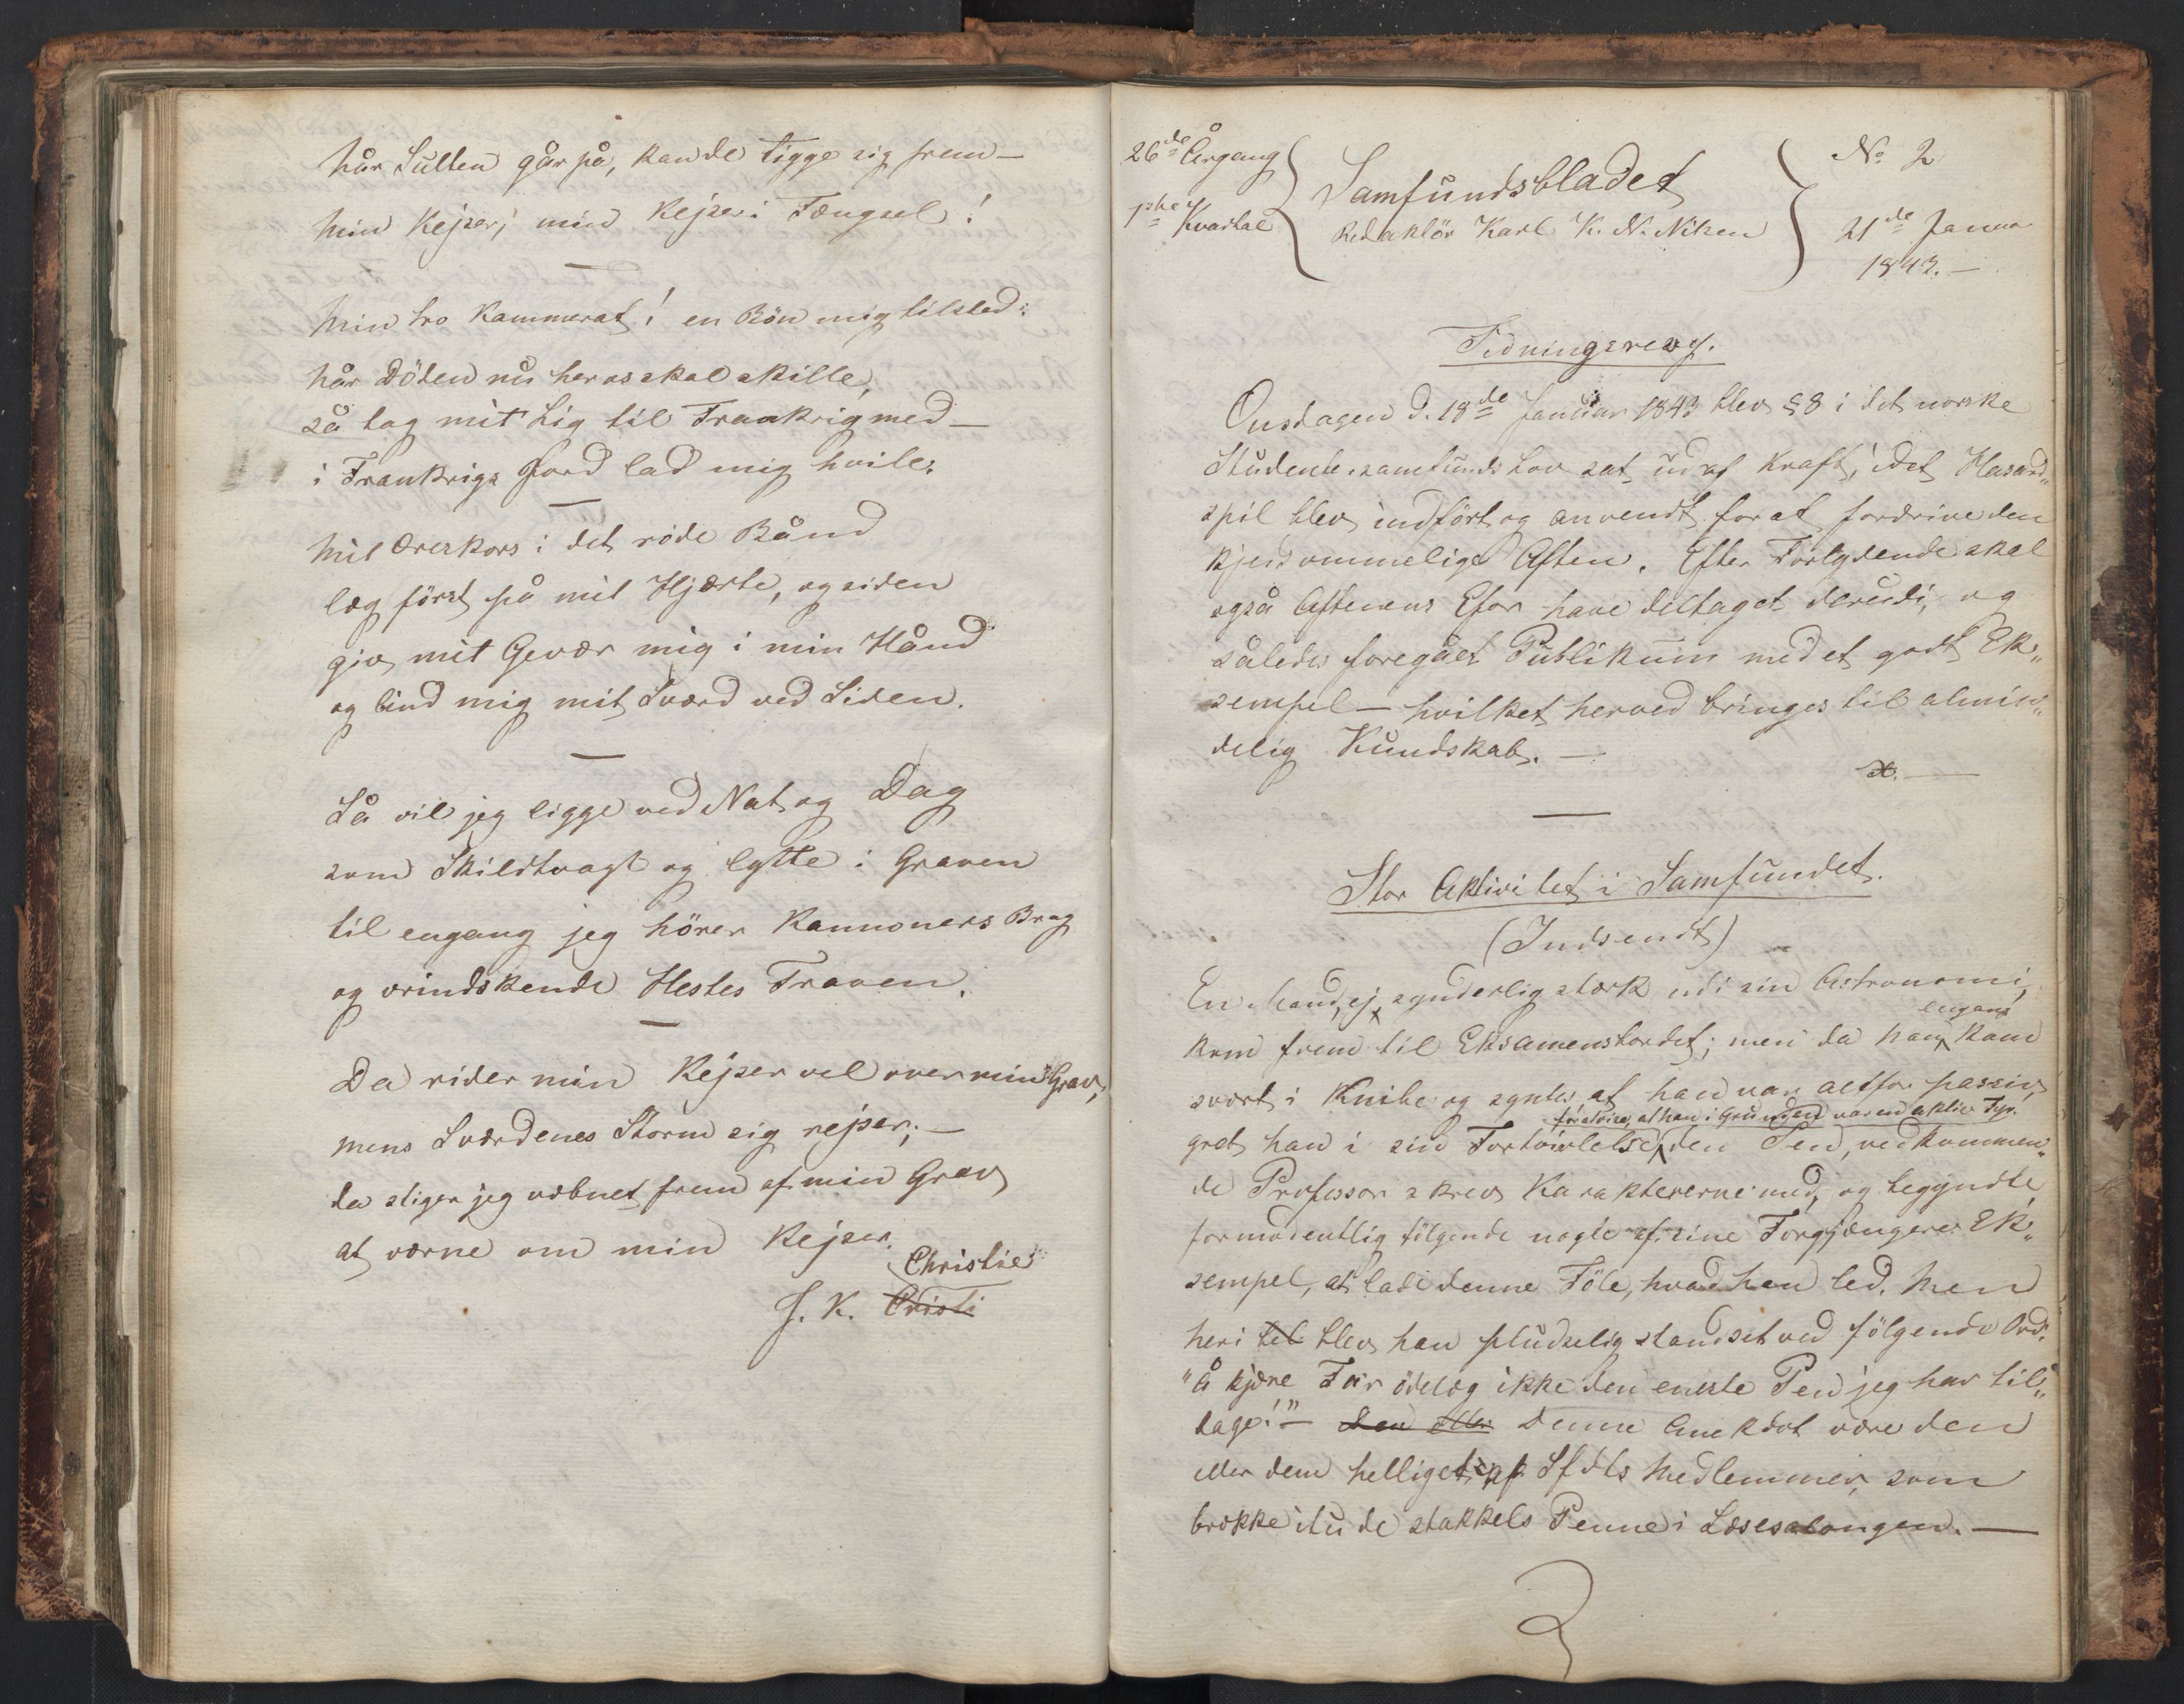 når Sulten går på, kan de tigge sig frem —
min Kejser, min Kejser i Fængsel!
—
Min tro Kammerat! en Bön mig tilsted:
når Döden nu her os skal skille,
så tag mit Lig til Frankrig med —
i Frankrigs Jord lad mig hvile.
—
Mit Æreskors i det röde Bånd
læg först på mit Hjærte, og siden
giv mit Gevær mig i min Hånd
og bind mig mit Sværd ved Siden.
—
Så vil jeg ligge ved Nat og Dag
som Skildtvagt og lytte i Graven
til engang jeg hörer Kannoners Brag
og vrindskende Hestes Traven.
—
Da rider min Kejser vel over min Grav,
mens Sværdenes Storm sig rejser; —
da stiger jeg væbnet frem af min Grav
at værne om min Kejser.
Christie
J. K. Cristi
26de Årgang
1ste Kvartal
Samfundsbladet
Redaktör Karl K. N. Nilsen
No 2
21de Janua
1843. —
Tidningsrevy.
Onsdagen d. 18de Januar 1843 blev § 8 i det norske
Studentersamfunds Lov sat ud af Kraft, idet Hasard„
spil blev indfört og anvendt for at fordrive den
kjedsommelige Aften. Efter Forlydende skal
også Aftenens Efor have deltaget derudi, og
således foregået Publikum med et godt Ek„
sempel — hvilket herved bringes til almin„
delig Kundskab. —
x. —
—
Stor Aktivitet i Samfundet.
(Indsendt)
En Mand, ej synderlig stærk udi sin Astronomi,
engang
kom frem til Eksamensbordet; men da han kom
svært i Knibe og syntes at han var altfor passiv,
for at vise, at han i Grunden var en aktiv Fyr.
greb han i sin Fortvivlelse den Pen, vedkommen„
de Professor skrev Karaktererne med, og begyndte
formodentlig fölgende nogle af sine Forgjængeres Ek„
sempel, at lade denne Föle, hvad han led. Men
heri til blev han pludselig standset ved fölgende Ord:
"Å kjære Far ödelæg ikke den eneste Pen jeg har til„
bage!" — Den eller Denne Anekdot være den
eller dem helliget af Sfdts Medlemmer, som
brække itu de stakkels Penne i Læsesalongen. —